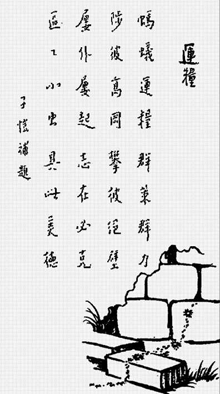 運糧
螞蟻運糧 群策群力
陟彼高岡 攀彼絕壁
屢仆屢起 志在必克
區區小虫 具此美德
子愷補題